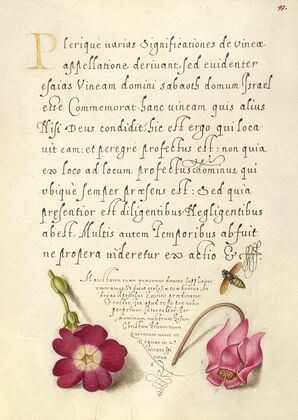 97.
Plerique varias Significationes de vineæ
appellatione derivant, sed evidenter
esaias Vineam domini sabaoth domum Israel
esse Commemorat. hanc vineam quis alius
Nisi Deus condidit, hic est ergo qui loca
vit eam: et peregre profectus est: non quia
ex loco ad locum profectus dominus, qui
ubique semper præsens est: Sed quia
presentior est diligentibus Negligentibus
abest. Multis autem Temporibus abfuit
ne propera videretur exactio &c
Maiestatem tuam quæsumus domine suppliciter
Christum Filium tuum
Regnat in u
nitate Spi
ritus